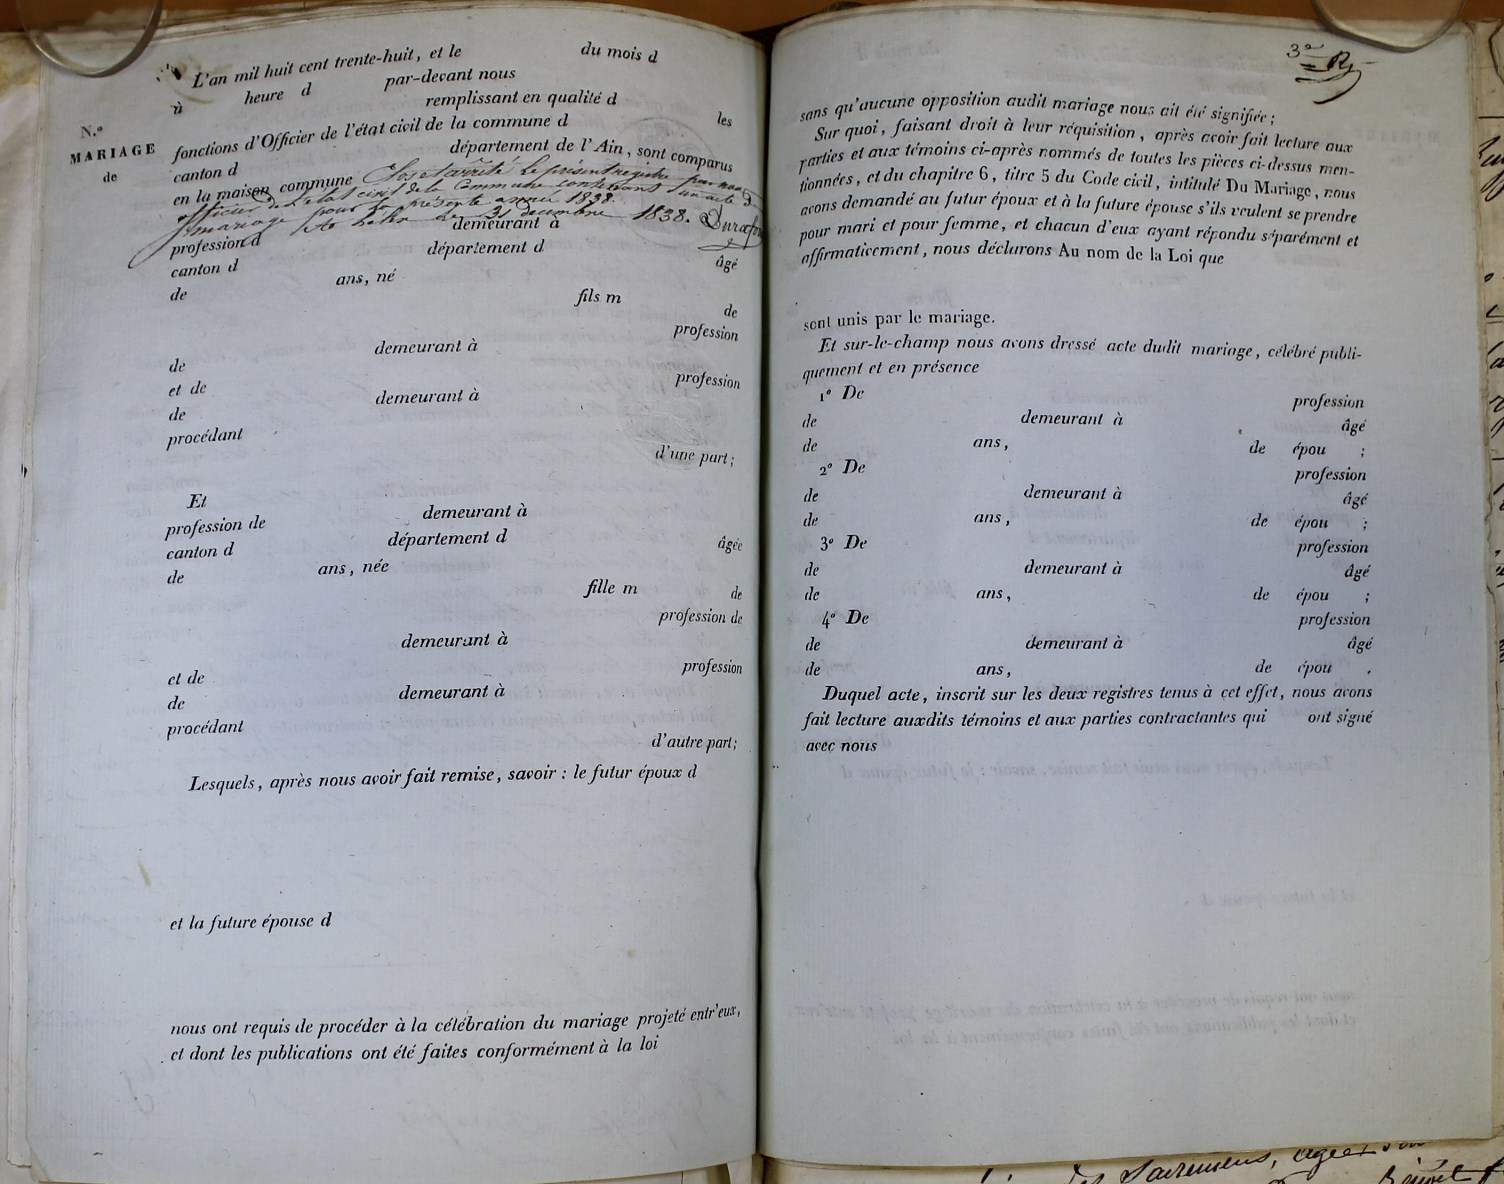 L'an mil huit cent trente-huit, et le du mois d
à heure d par-devant nous
remplissant en qualité d les
N.º
MARIAGE
de
fonctions d'Officier de l'état civil de la commune d
canton d département de l'Ain, sont comparus
en la maison commune Clos et arrêté le présent registre par nous
officier de l'état civil de la Commune contenant un acte d
mariage pour la présente année 1838.
le 31 decembre 1838.
demeurant à
profession d
canton d département d âgé
de ans, né
fils m de
profession
de demeurant à
et de profession
de demeurant à
procédant
d'une part;
Et
profession de demeurant à
canton d département d âgée
de ans, née
fille m de
profession de
demeurant à
et de profession
de demeurant à
procédant
d'autre part;
Lesquels, après nous avoir fait remise, savoir : le futur époux d
et la future épouse d
nous ont requis de procéder à la célébration du mariage projeté entr'eux,
et dont les publications ont été faites conformément à la loi
3e
sans qu'aucune opposition audit mariage nous ait été signifiée;
Sur quoi, faisant droit à leur réquisition, après avoir fait lecture aux
parties et aux témoins ci-après nommés de toutes les pièces ci-dessus men-
tionnées, et du chapitre 6, titre 5 du Code civil, intitulé Du Mariage, nous
avons demandé au futur époux et à la future épouse s'ils veulent se prendre
pour mari et pour femme, et chacun d'eux ayant répondu séparément et
affirmativement, nous déclarons Au nom de la Loi que
sont unis par le mariage.
Et sur-le-champ nous avons dressé acte dudit mariage, célébré publi-
quement et en présence
1º De profession
de demeurant à âgé
de ans, de épou ;
2º De profession
de demeurant à âgé
de ans, de épou ;
3º De profession
de demeurant à âgé
de ans, de épou ;
4º De profession
de demeurant à âgé
de ans, de épou .
Duquel acte, inscrit sur les deux registres tenus à cet effet, nous avons
fait lecture auxdits témoins et aux parties contractantes qui ont signé
avec nous